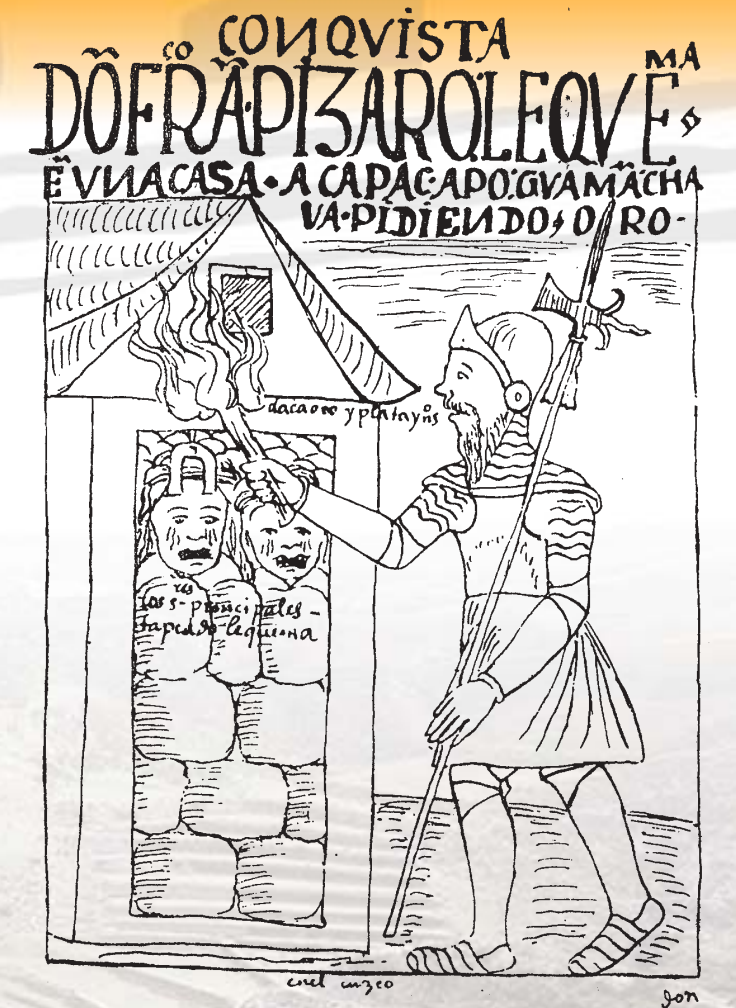 CONQVISTA
DÕ FRÃ.CO PIZARO LE QVEMA,
Ẽ VNA CASA · A CAPAC·APO·GVAMÃCHA
VA·PIDIENDO, ORO-
daca oro y plata yñs
los s.res principales -
tapeado le quema
en el cuzco